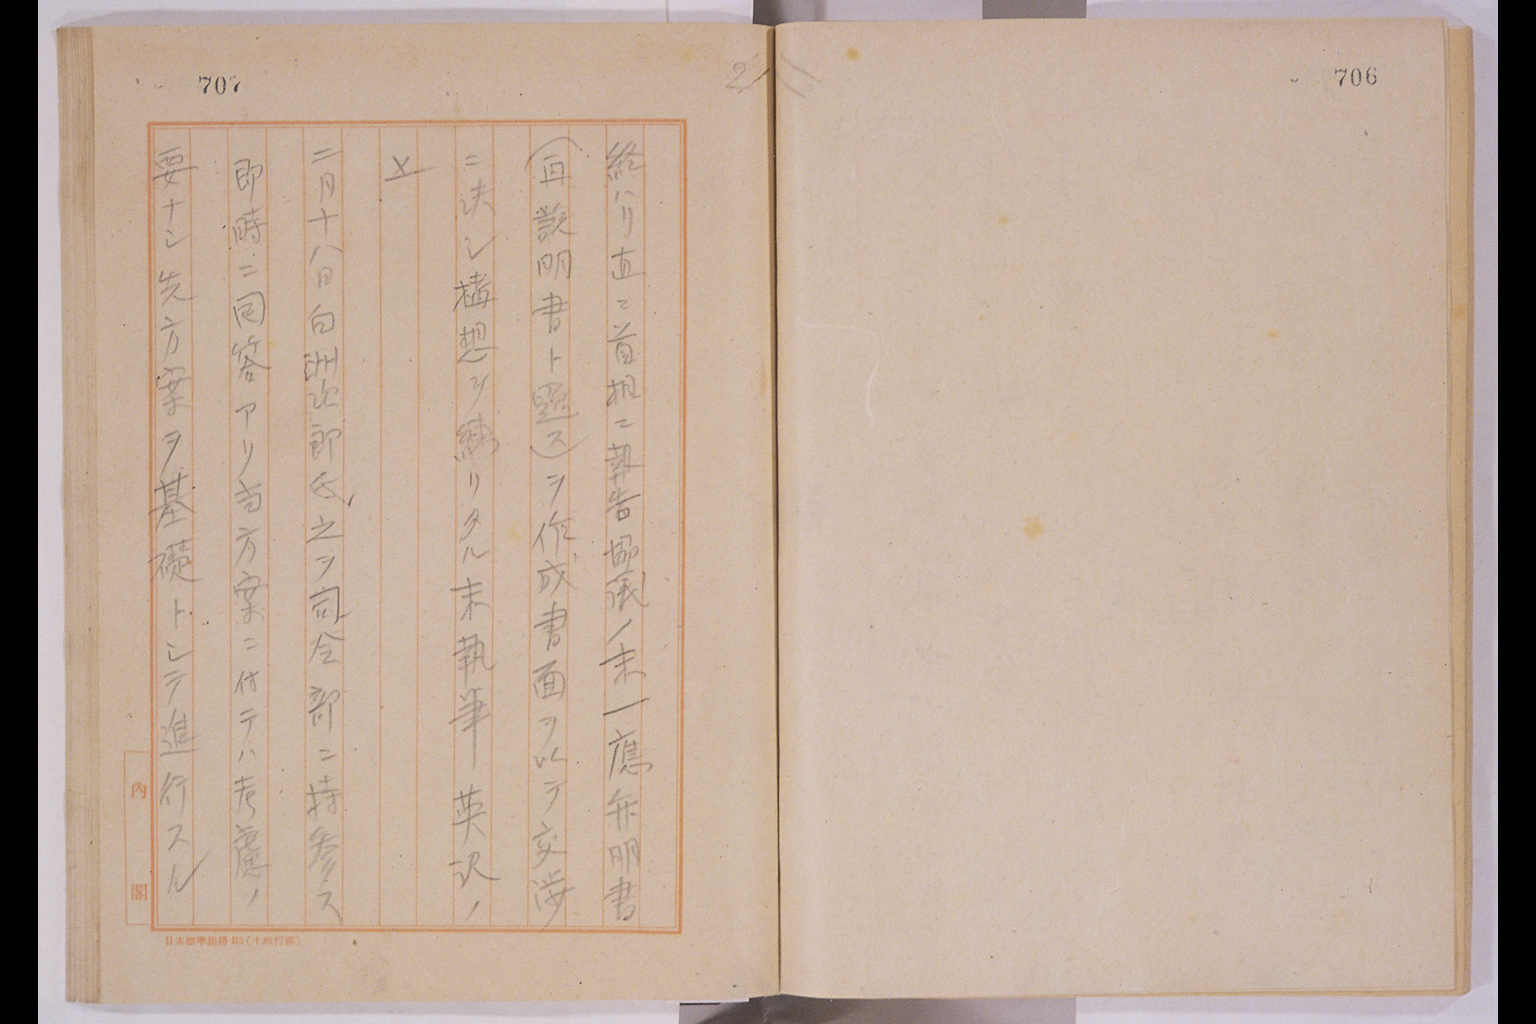 706
707
終ハリ直ニ首相ニ報告協議ノ末一応弁明書
(再説明書ト題ス)ヲ作成書面ヲ以テ交渉
ニ決シ構想ヲ練リタル末執筆 英訳ノ
上
二月十八日白洲次郎氏之ヲ司令部ニ持参ス
即時ニ回答アリ当方案ニ付テハ考慮ノ
要ナシ先方案ヲ基礎トシテ進行スル
内閣
日本標準規格B5(十四行罫)